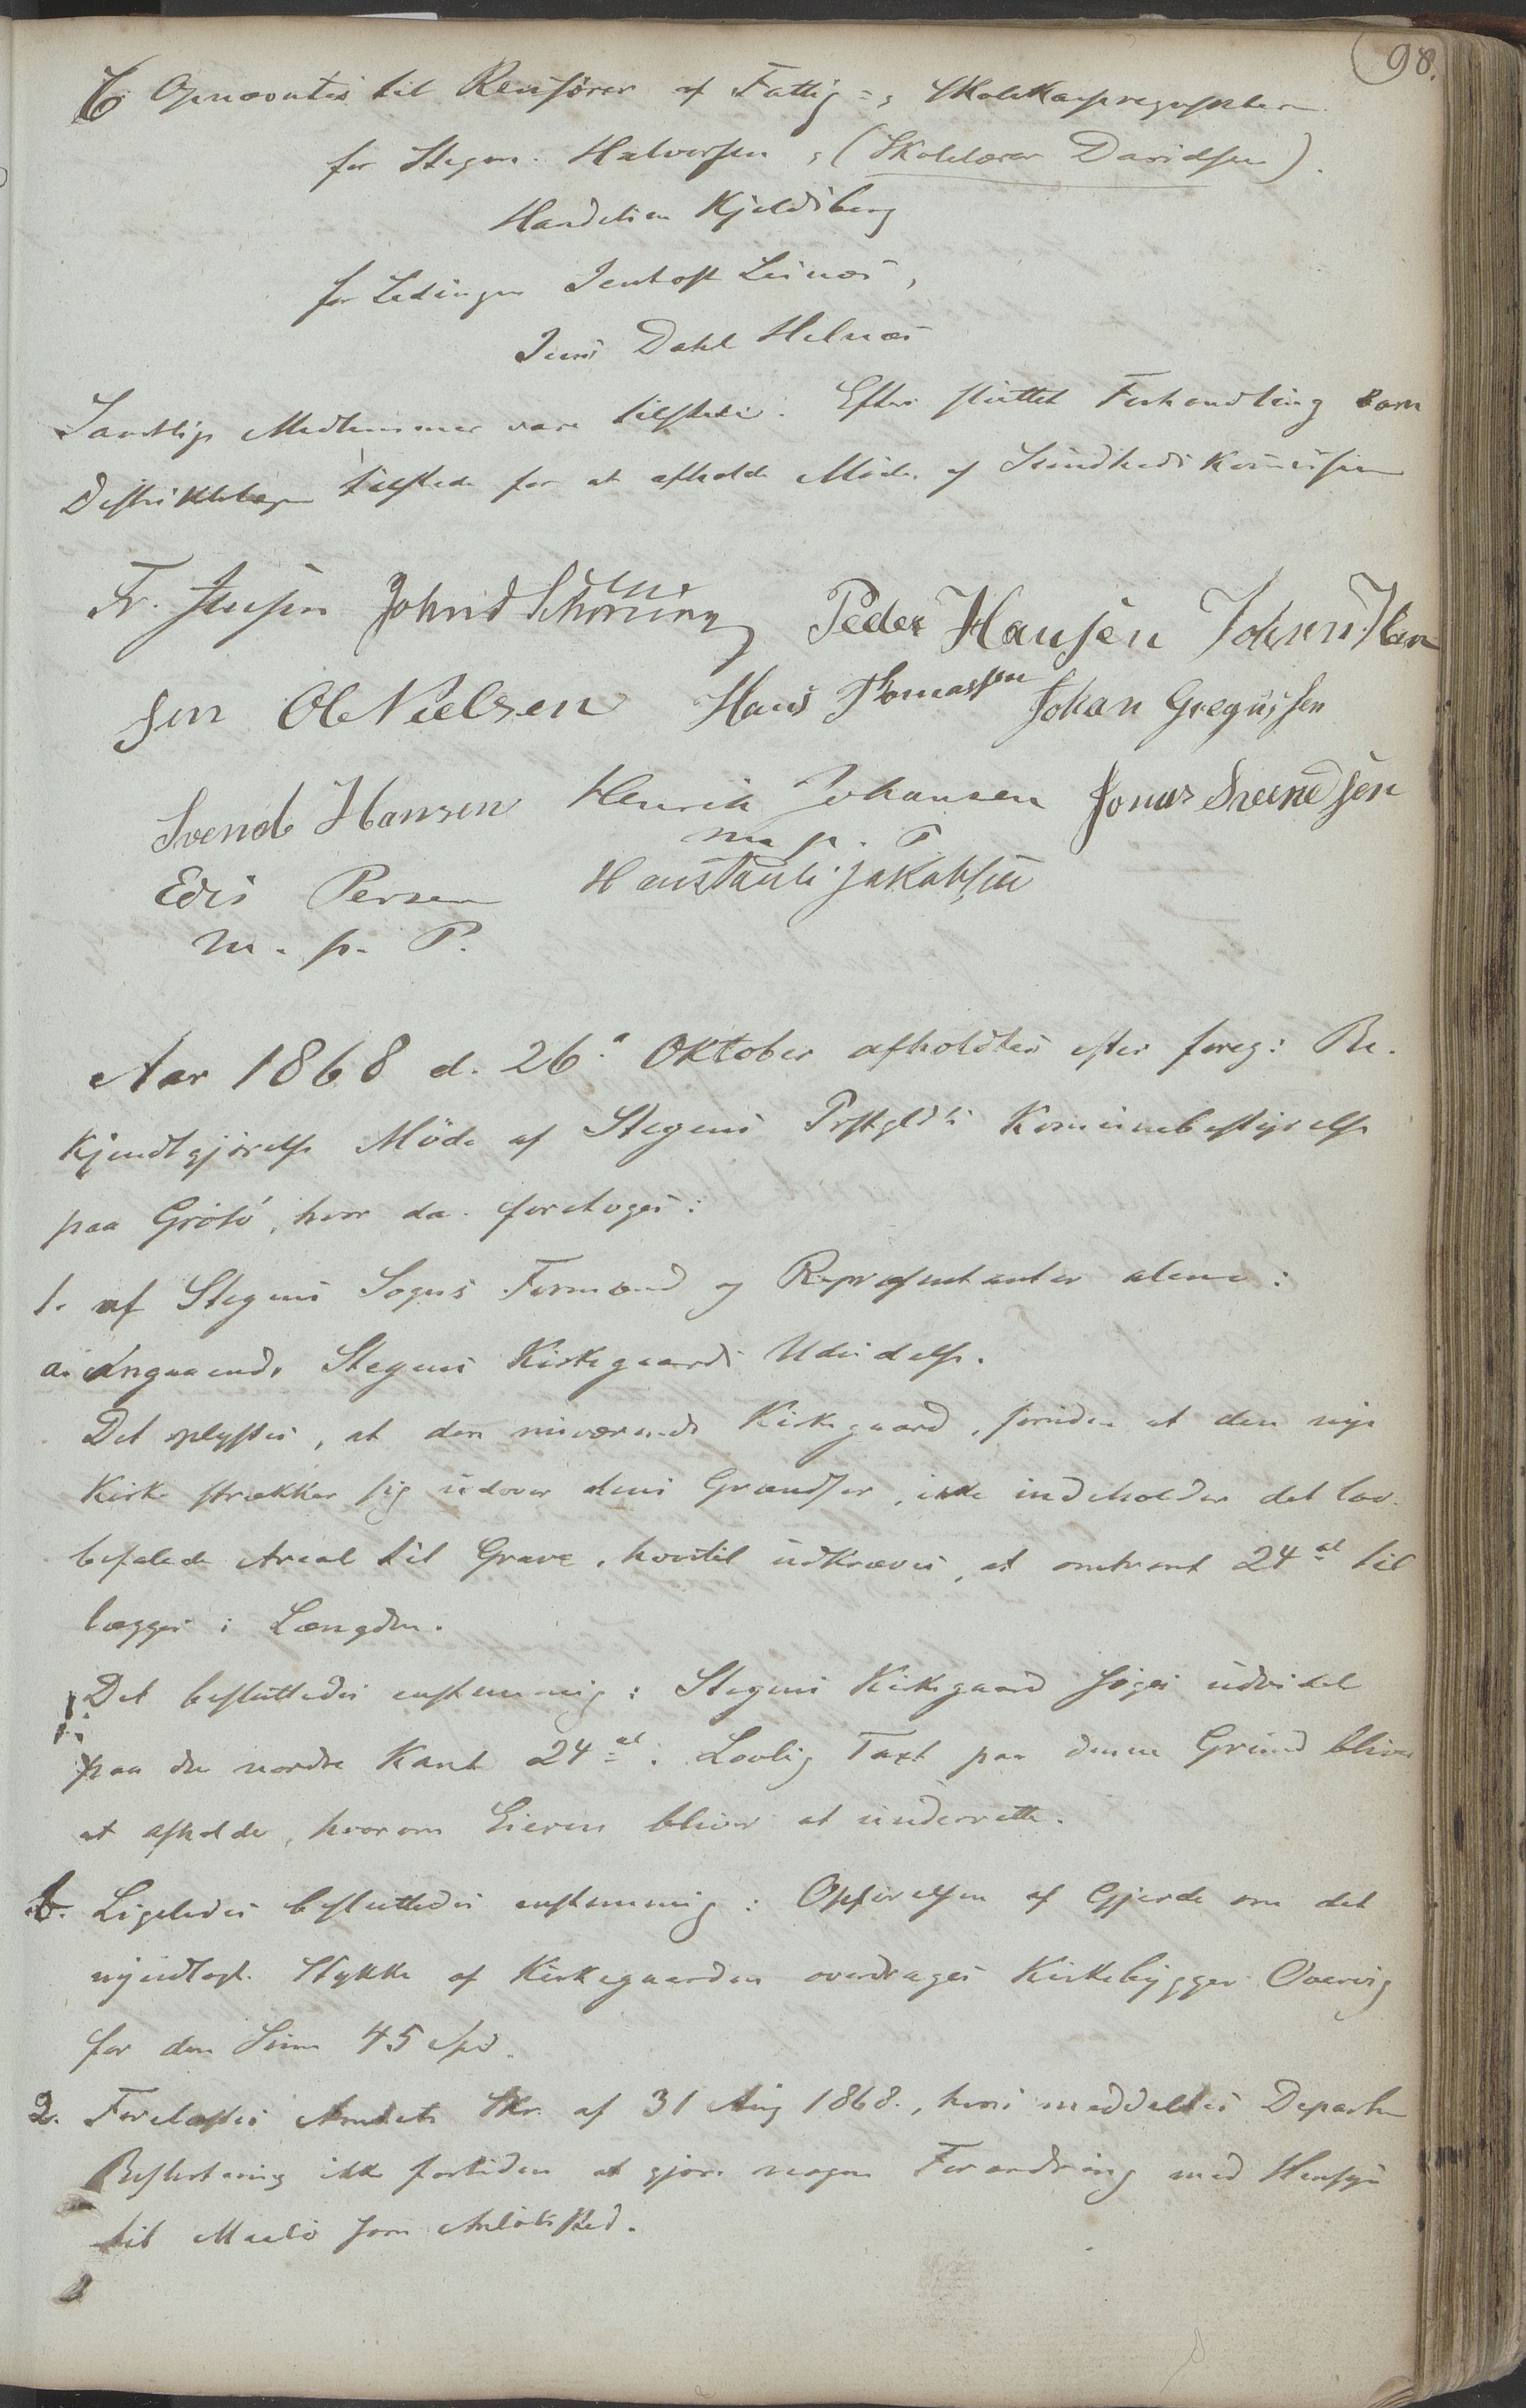 98.
6 Opnævntes til Revisorer af Fattig- og Skolekasseregnskaberne
for Stegen. Halvorsen, (Skolelærer Davidsen).
Handelsm Kjeldsberg
for Ledingen Jentoft Lines,
Jens Dahl Helnæs
Samtlige Medlemmer vare tilstede. Efter sluttet Forhandling kom
Distriktslægen tilstede for at afholde Møde af Sundhedskommissionen
Fr. Jensen John d Schøning Peder Hansen Johan Han
sen Ole Nielsen Hans Thomassen Johan Gregussen
Svend Hansen Henrik Johansen Jonas Svendsen
m. p. P.
Edis Persen Hans Pauli Jakobsen
m. p. P.
Aar 1868 d. 26. Oktober afholdtes efter foreg: Be-
kjendtgjørelse Møde af Stegens Prstgldts Kommunebestyrelse
paa Grøtø, hvor da foretoges:
1. af Stegens Sogns Formænd og Repræsentanter alene:
a. Angaaende Stegens Kirkegaards Udvidelse.
Det oplystes, at den nuværende Kirkegaard, foruden at den nye
Kirke strækker sig udover dens Grændser, ikke indeholder det lov-
befalede Areal til Grave, hvortil udkræves, at omtrent 24 al til
lægges i Længden.
Det besluttedes enstemmig: Stegens Kirkegaard søges udvidet
paa den nordre Kant 24 al. Lovlig Taxt paa denne Grund bliver
at afholde, hvorom Eieren bliver at underrette.
b. Ligeledes besluttedes enstemmig: Opførelsen af Gjerde om det
nyindtagne Stykke af Kirkegaarden overdrages Kirkebygger Overvig
for den Sum 45 Spd.
2. Forelæstes Amtets Skr. af 31 Aug 1868., hvori meddeltes Departem
Beslutning ikke fortiden at gjøre nogen Forandring med Hensyn
til Maalø som Anløbssted.